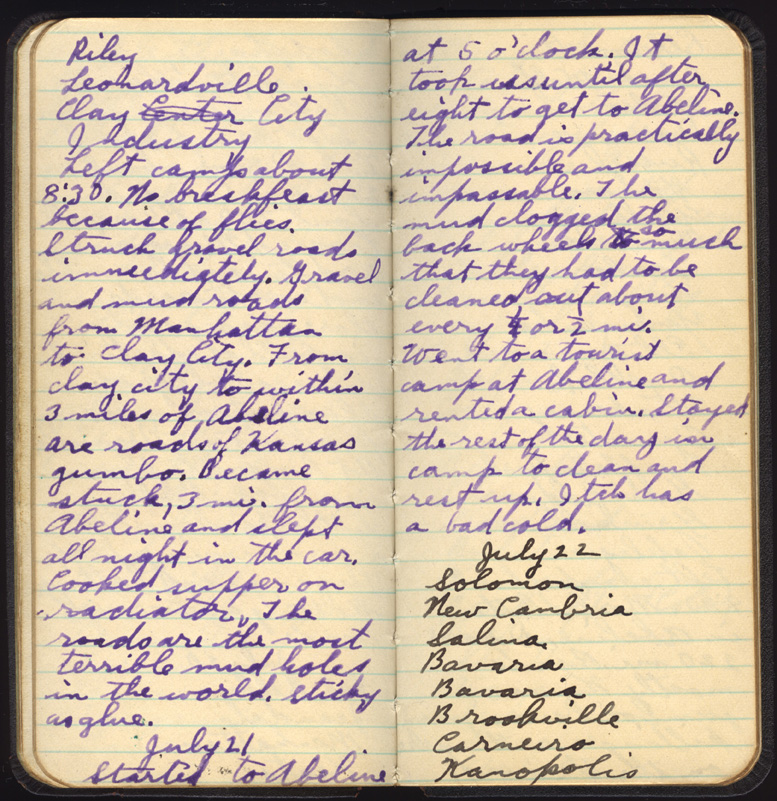 Riley
Leonardville.
Clay Center City
Industry
Left camp about
8:30. No breakfeast
because of flies.
Struck gravel roads
immediately. Gravel
and mud roads
from Manhattan
to Clay City. From
Clay city to within
3 miles of Abeline
are roads of Kansas
gumbo. Became
stuck, 3 mi. from
Abeline and slept
all night in the car.
Cooked supper on
radiator. The
roads are the most
terrible mud holes
in the world. Sticky
as glue.
July 21
Started to Abeline
at 5 o'clock. It
took us until after
eight to get to Abeline.
The road is practically
impossible and
impassable. The
mud clogged the
back wheels so much
that they had to be
cleaned out about
every ¼ or ½ mi.
Went to a tourist
camp at Abeline and
rented a cabin. Stayed
the rest of the day in
camp to clean and
rest up. Itch has
a bad cold.
July 22
Solomon
New Cambria
Salina.
Bavaria
Bavaria
Brookville
Carneiro
Kanopolis